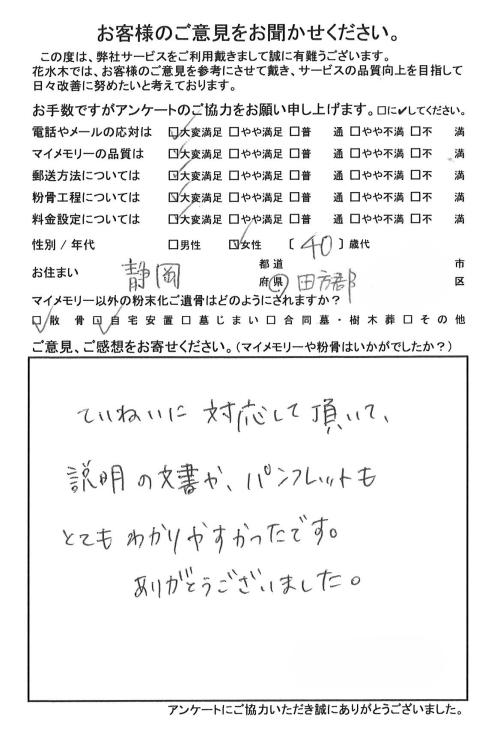 お客様のご意見をお聞かせください。
この度は、弊社サービスをご利用戴きまして誠に有難うございます。
花水木では、お客様のご意見を参考にさせて戴き、サービスの品質向上を目指して
日々改善に努めたいと考えております。
お手数ですがアンケートのご協力をお願い申し上げます。□に✓してください。
電話やメールの応対は ☑大変満足 □やや満足 □普 通 □やや不満 □不 満
マイメモリーの品質は ☑大変満足 □やや満足 □普 通 □やや不満 □不 満
郵送方法については ☑大変満足 □やや満足 □普 通 □やや不満 □不 満
粉骨工程については ☑大変満足 □やや満足 □普 通 □やや不満 □不 満
料金設定については ☑大変満足 □やや満足 □普 通 □やや不満 □不 満
性別 / 年代 □男性 ☑女性 〔 40 〕歳代
お住まい 静岡 都道府県 田方郡 市区
マイメモリー以外の粉末化ご遺骨はどのようにされますか?
☑散骨 ☑自宅安置 □墓じまい □合同墓・樹木葬 □その他
ご意見、ご感想をお寄せください。(マイメモリーや粉骨はいかがでしたか?)
ていねいに 対応して頂いて、
説明の文書や、パンフレットも
とても わかりやすかったです。
ありがとうございました。
アンケートにご協力いただき誠にありがとうございました。